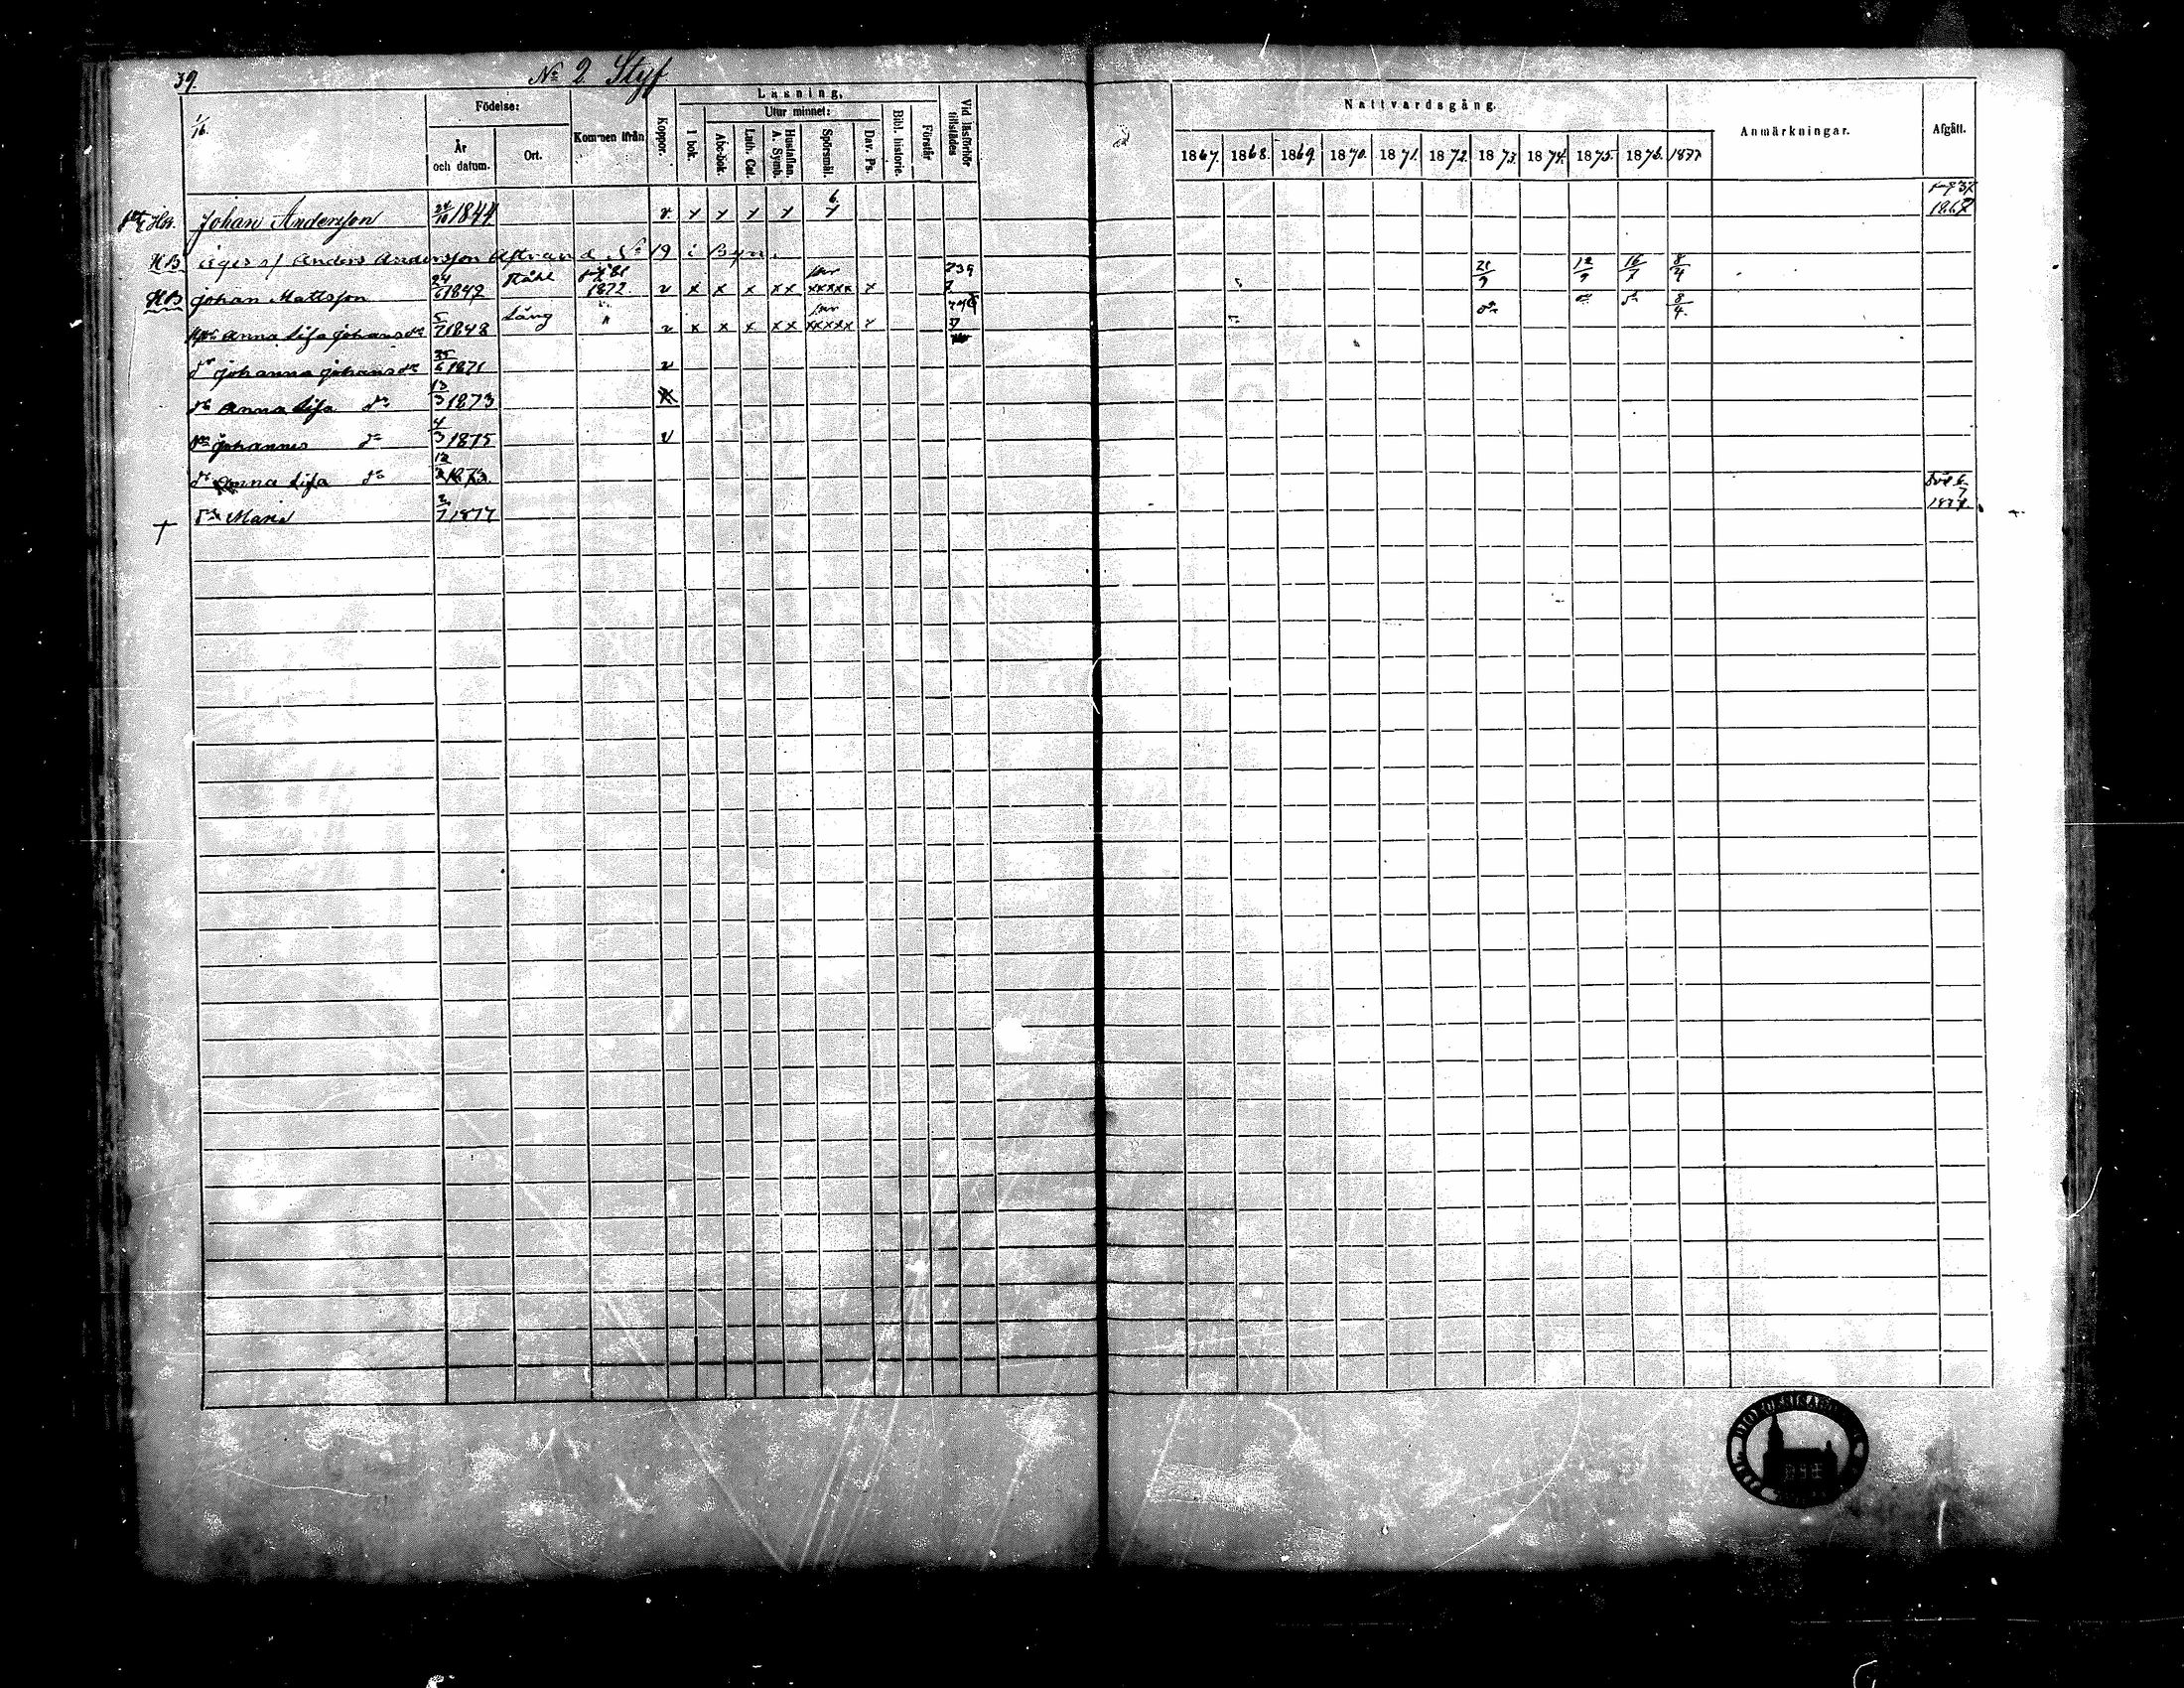 39.
No 2 Styf
1/16.
Födelse:
År och datum.
Ort.
Kommen ifrån
Koppor.
Läsning,
I bok.
Utur minnet:
Abc-bok.
Luth. Cat.
Hustaflan. A. Symb.
Spörsmål.
Dav. Ps.
Bibl. historie.
Förstår
Vid läsförhör tillstädes
Nattvardsgång.
1867. 1868. 1869. 1870. 1871. 1872. 1873. 1874. 1875. 1876. 1877
Anmärkningar.
Afgått.
Johan Andersson 24/10 1844 v y y y y 6 y 1867
HB äges af Anders Andersson Åstrand No 19 i Byn.
HB Johan Mattsson 24/6 1847 1872. v x x x xx xxxxx x 21/9 12/9 16/7 8/4
Anna Lisa Johansdr 5/7 1848 Lång v x x x xx xxxxx x do 8/4.
dr Johanna Johansdr 25/6 1871 v
dr Anna Lisa do 13/3 1873
Johannes do 4/3 1875 v
dr Anna Lisa do 1873.
† dr Maria 2/7 1877 Död 6/7 1877.